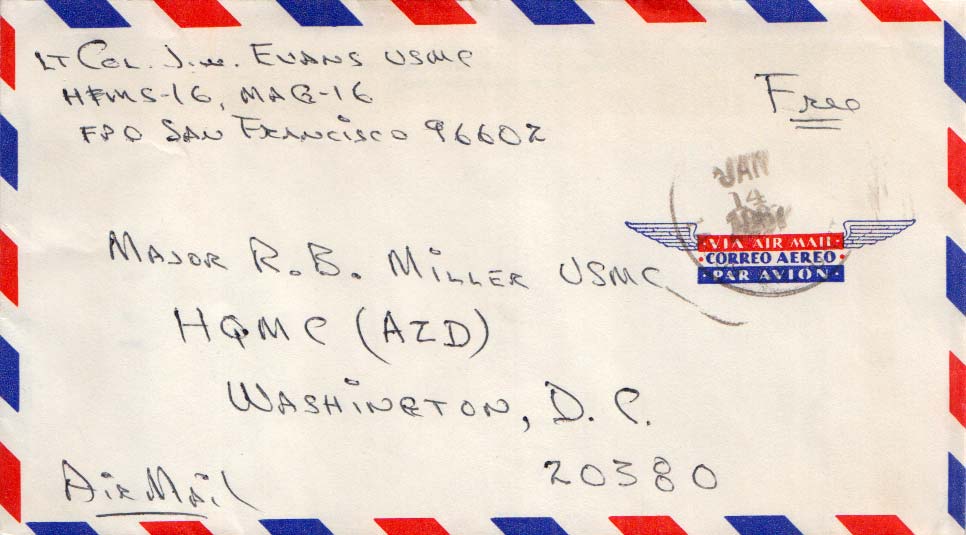 Lt Col. J.W. Evans USMC
H&MS-16, MAG-16
FPO San Francisco 96602
Free
JAN
14
VIA AIR MAIL
CORREO AEREO
PAR AVION
Major R.B. Miller USMC
HQMC (AZD)
Washington, D.C.
20380
Air Mail